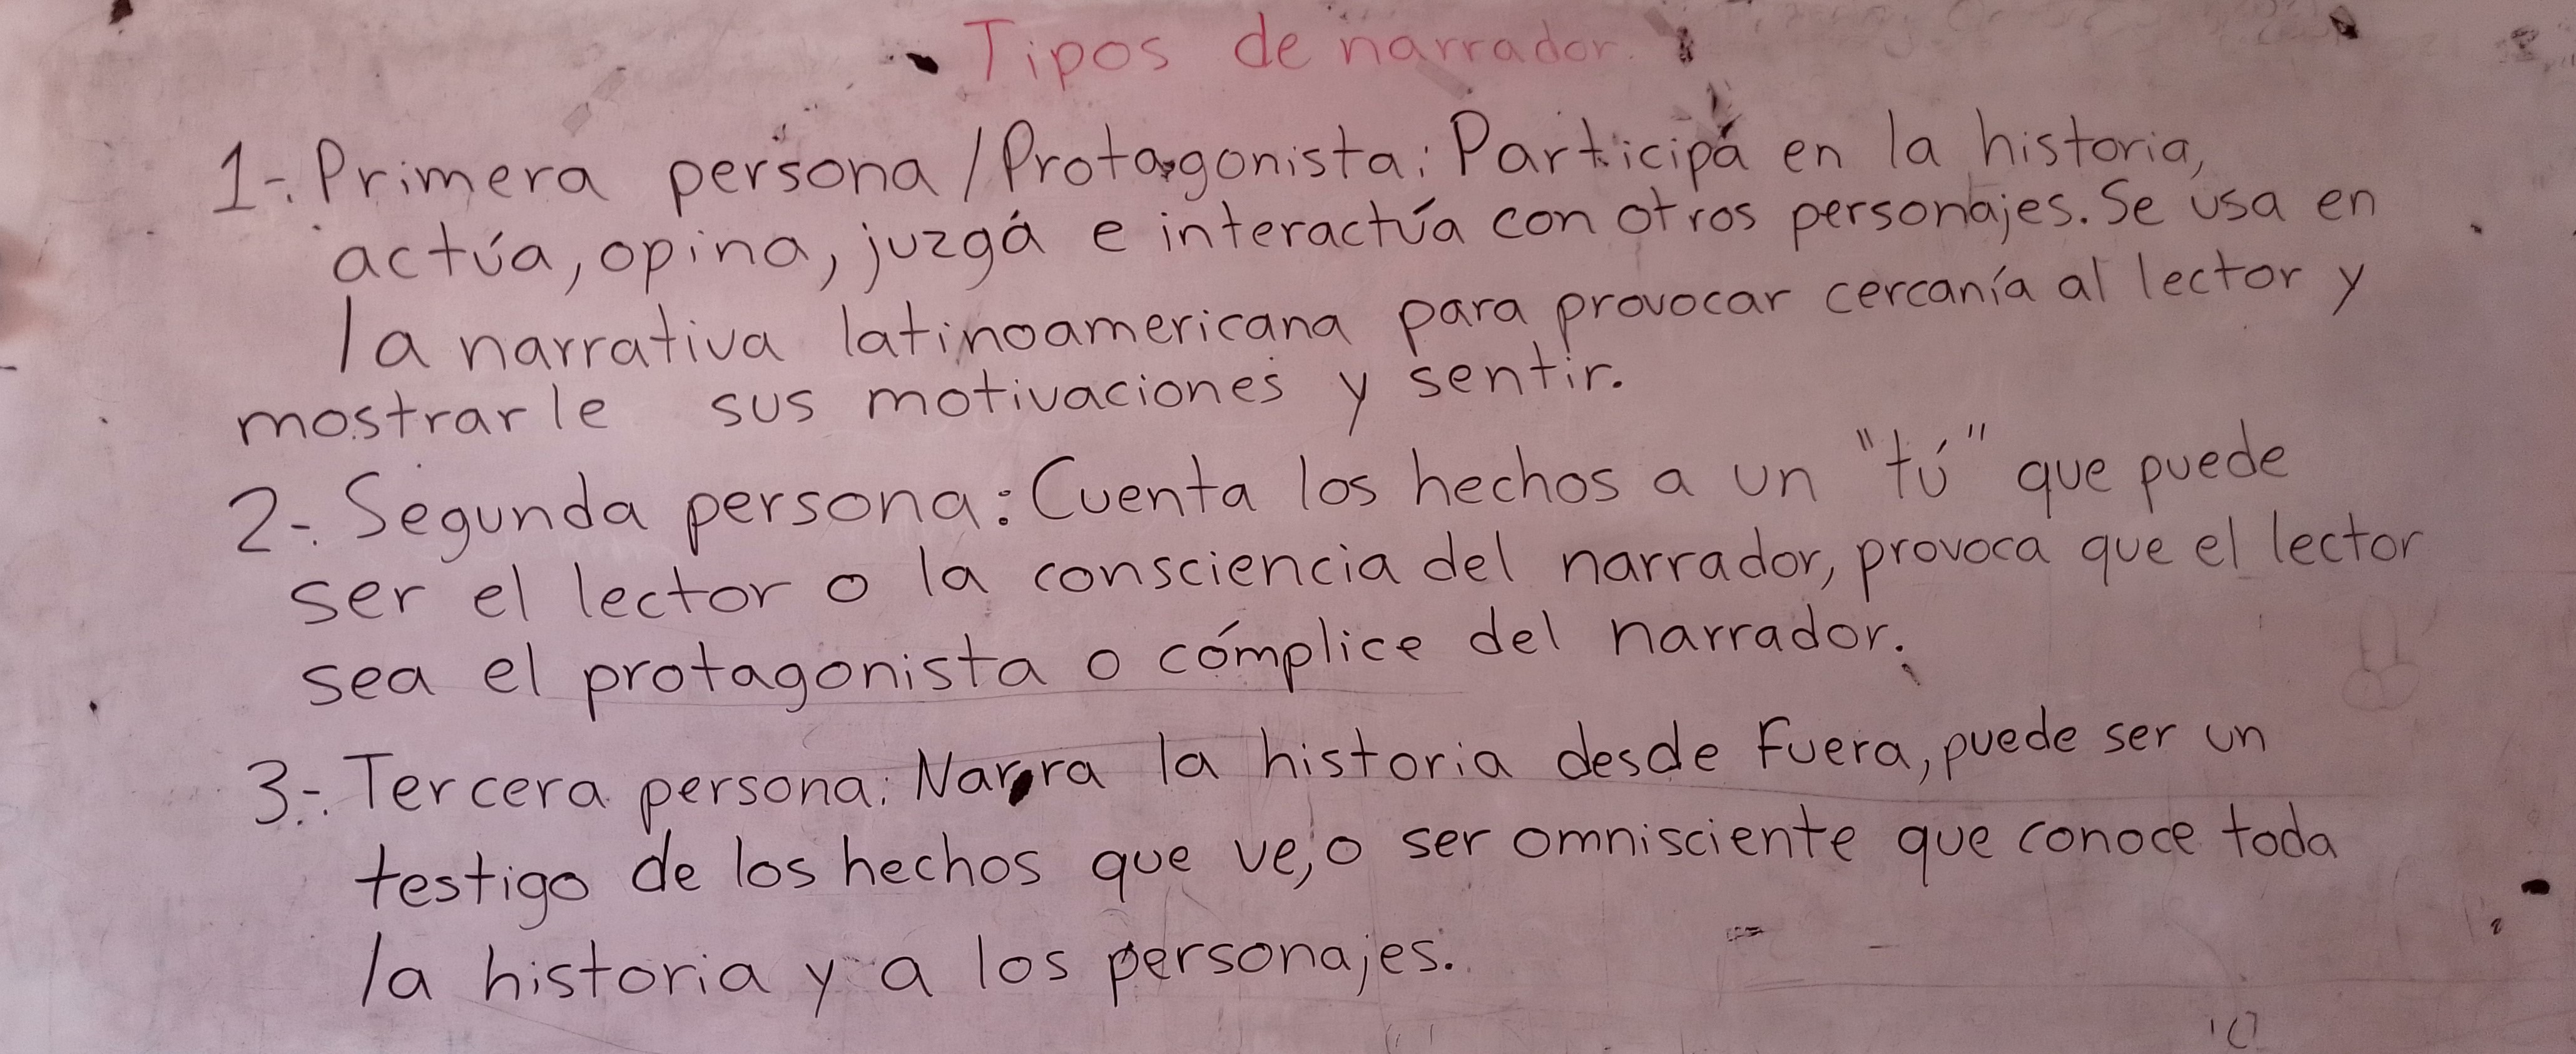 Tipos de narrador
1-. Primera persona / Protagonista: Participa en la historia,
actúa, opina, juzga e interactúa con otros personajes. Se usa en
la narrativa latinoamericana para provocar cercanía al lector y
mostrarle sus motivaciones y sentir.
2-. Segunda persona: Cuenta los hechos a un "tú" que puede
ser el lector o la consciencia del narrador, provoca que el lector
sea el protagonista o cómplice del narrador.
3-. Tercera persona: Narra la historia desde fuera, puede ser un
testigo de los hechos que ve, o ser omnisciente que conoce toda
la historia y a los personajes.